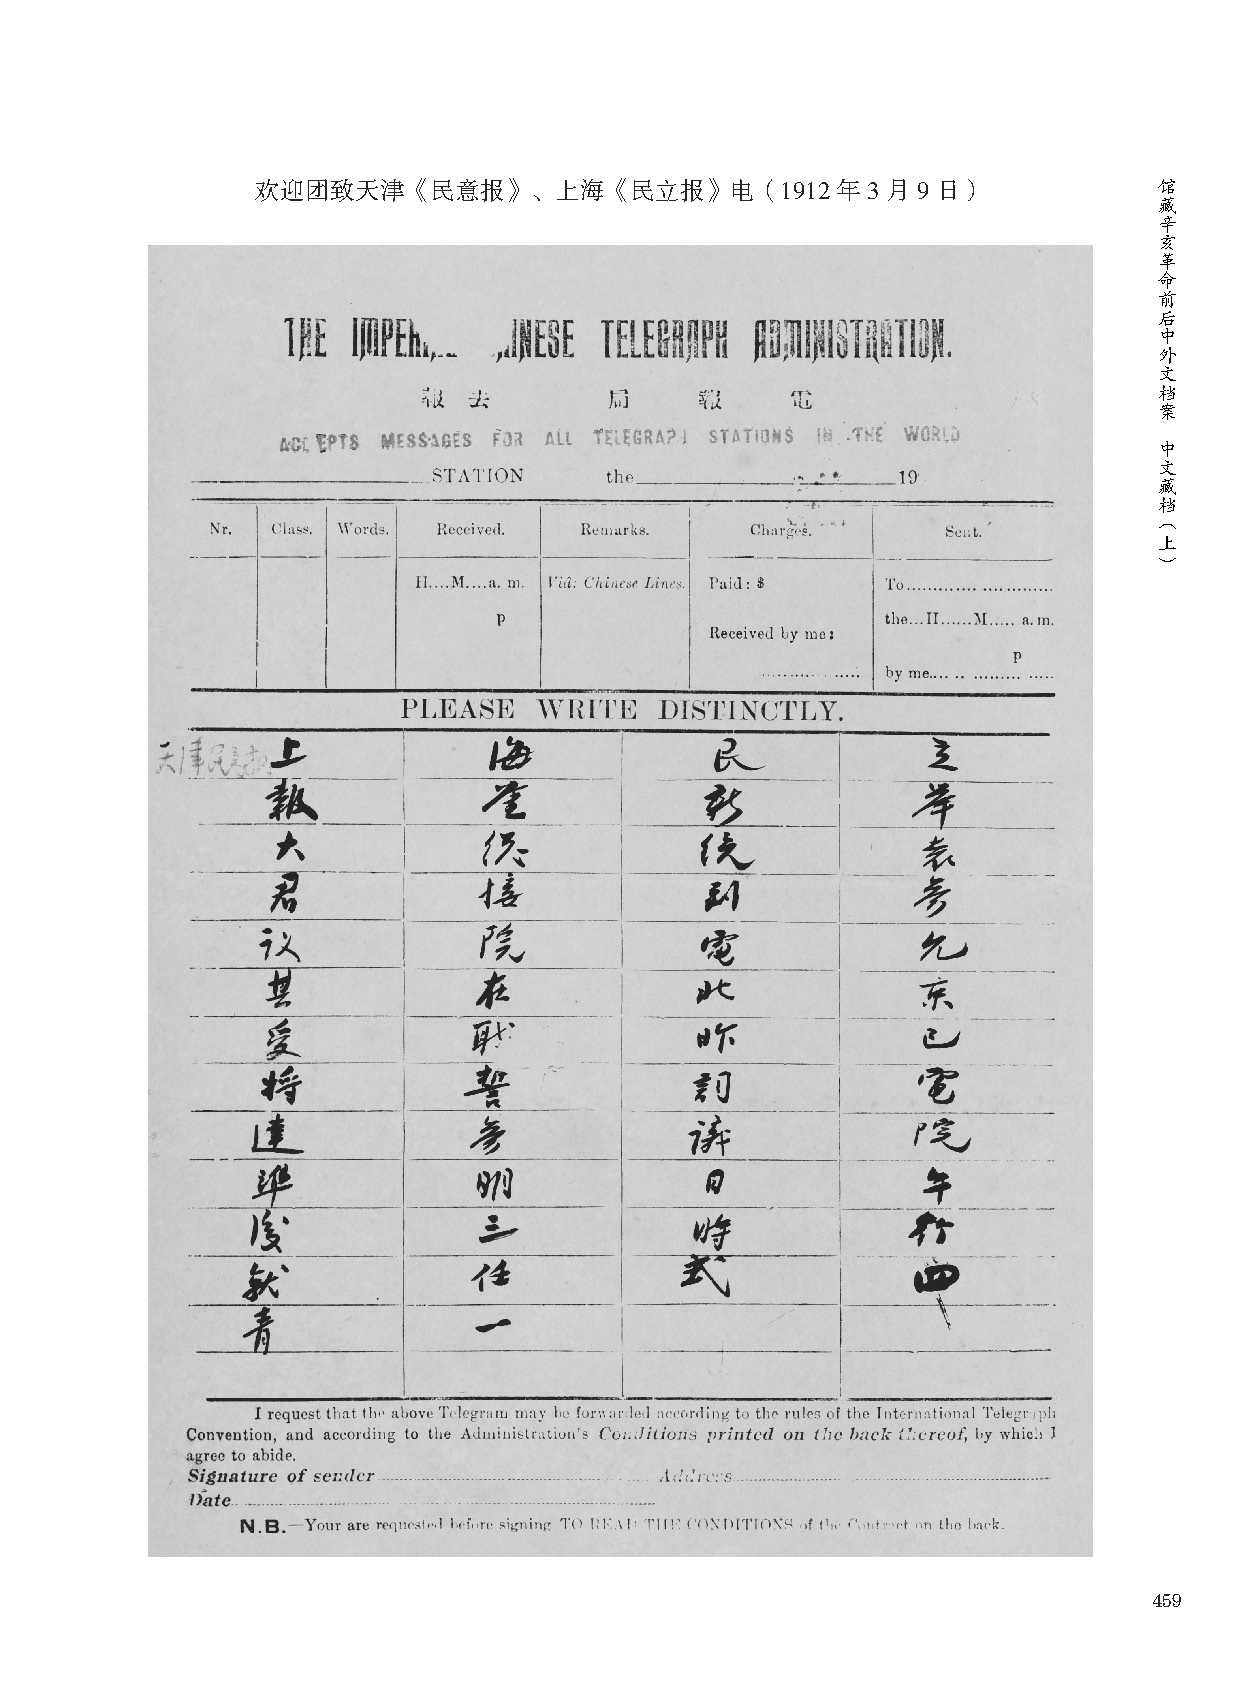 欢迎团致天津《民意报》、上海《民立报》电（1912年3月9日）
馆藏辛亥革命前后中外文档案 中文藏档（上）
THE IMPE NESE TELEGRAPH ADMINISTRATION.
報 去 局 報 電
ACCEPTS MESSAGES FOR ALL TELEGRAPH STATIONS IN THE WORLD
STATION the 19
Nr. Class. Words. Received. Remarks. Charges. Sent.
H....M....a. m. Viâ: Chinese Lines. Paid: $ To
p Received by me: the...H......M..... a. m.
p
by me
PLEASE WRITE DISTINCTLY.
天津民意报 上 海 民 立
報 鉴 新 举
大 总 统 袁
君 接 到 参
议 院 電 允
其 在 北 京
受 职 昨 已
将 誓 詞 電
達 参 議 院
準 明 日 午
後 三 時 行
就 任 式 四
青 一
I request that the above Telegram may be forwarded according to the rules of the International Telegraph
Convention, and according to the Administration's Conditions printed on the back thereof, by which I
agree to abide.
Signature of sender Address
Date
N.B.—Your are requested before signing TO READ THE CONDITIONS of the Contract on the back.
459